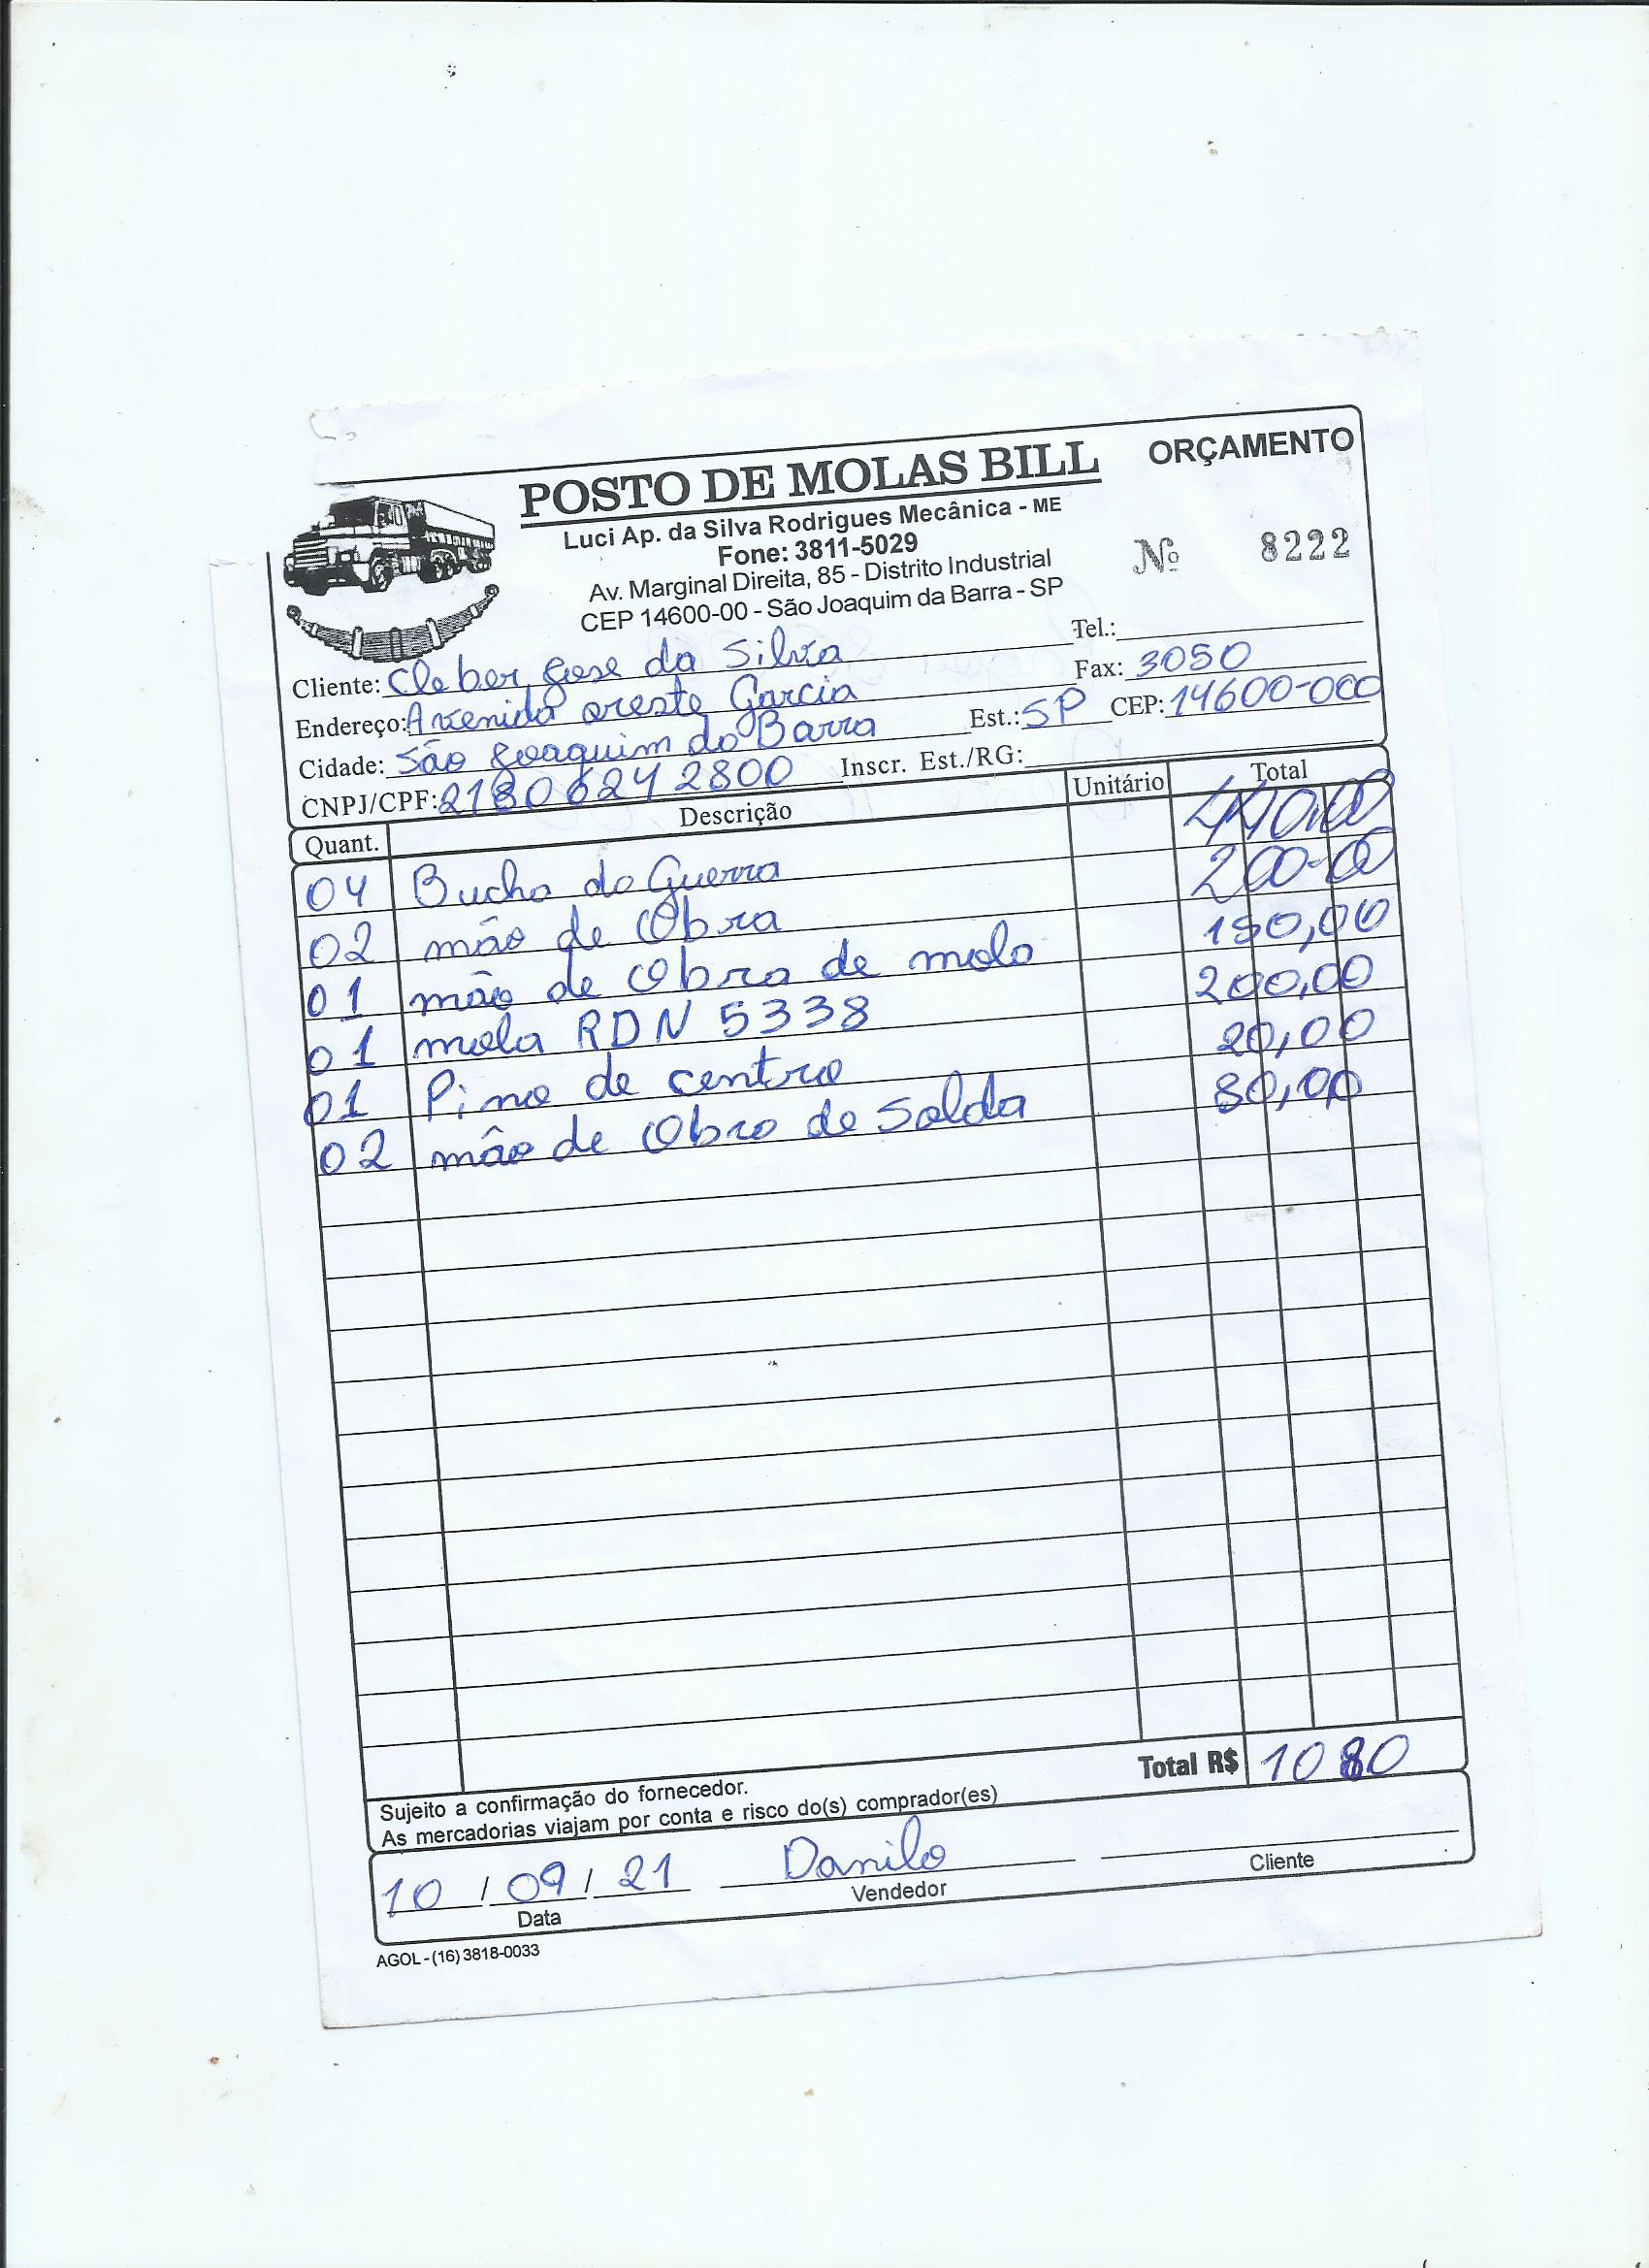 POSTO DE MOLAS BILL ORÇAMENTO
Luci Ap. da Silva Rodrigues Mecânica - ME
Fone: 3811-5029
Av. Marginal Direita, 85 - Distrito Industrial
CEP 14600-00 - São Joaquim da Barra - SP
Nº 8222
Cliente: Cleber Jose da Silva Tel.:
Endereço: Avenida oreste Garcia Fax: 3050
Cidade: São Joaquim da Barra Est.: SP CEP: 14600-000
CNPJ/CPF: 21806242800 Inscr. Est./RG:
Quant. Descrição Unitário Total
04 Bucha do Guerra 440,00
02 mão de Obra 200-00
01 mão de Obra de mola 150,00
01 mola RDN 5338 200,00
01 Pino de centro 20,00
02 mão de Obra de Solda 80,00
Total R$ 1080
Sujeito a confirmação do fornecedor.
As mercadorias viajam por conta e risco do(s) comprador(es)
10 / 09 / 21 Danilo
Data Vendedor Cliente
AGOL - (16) 3818-0033